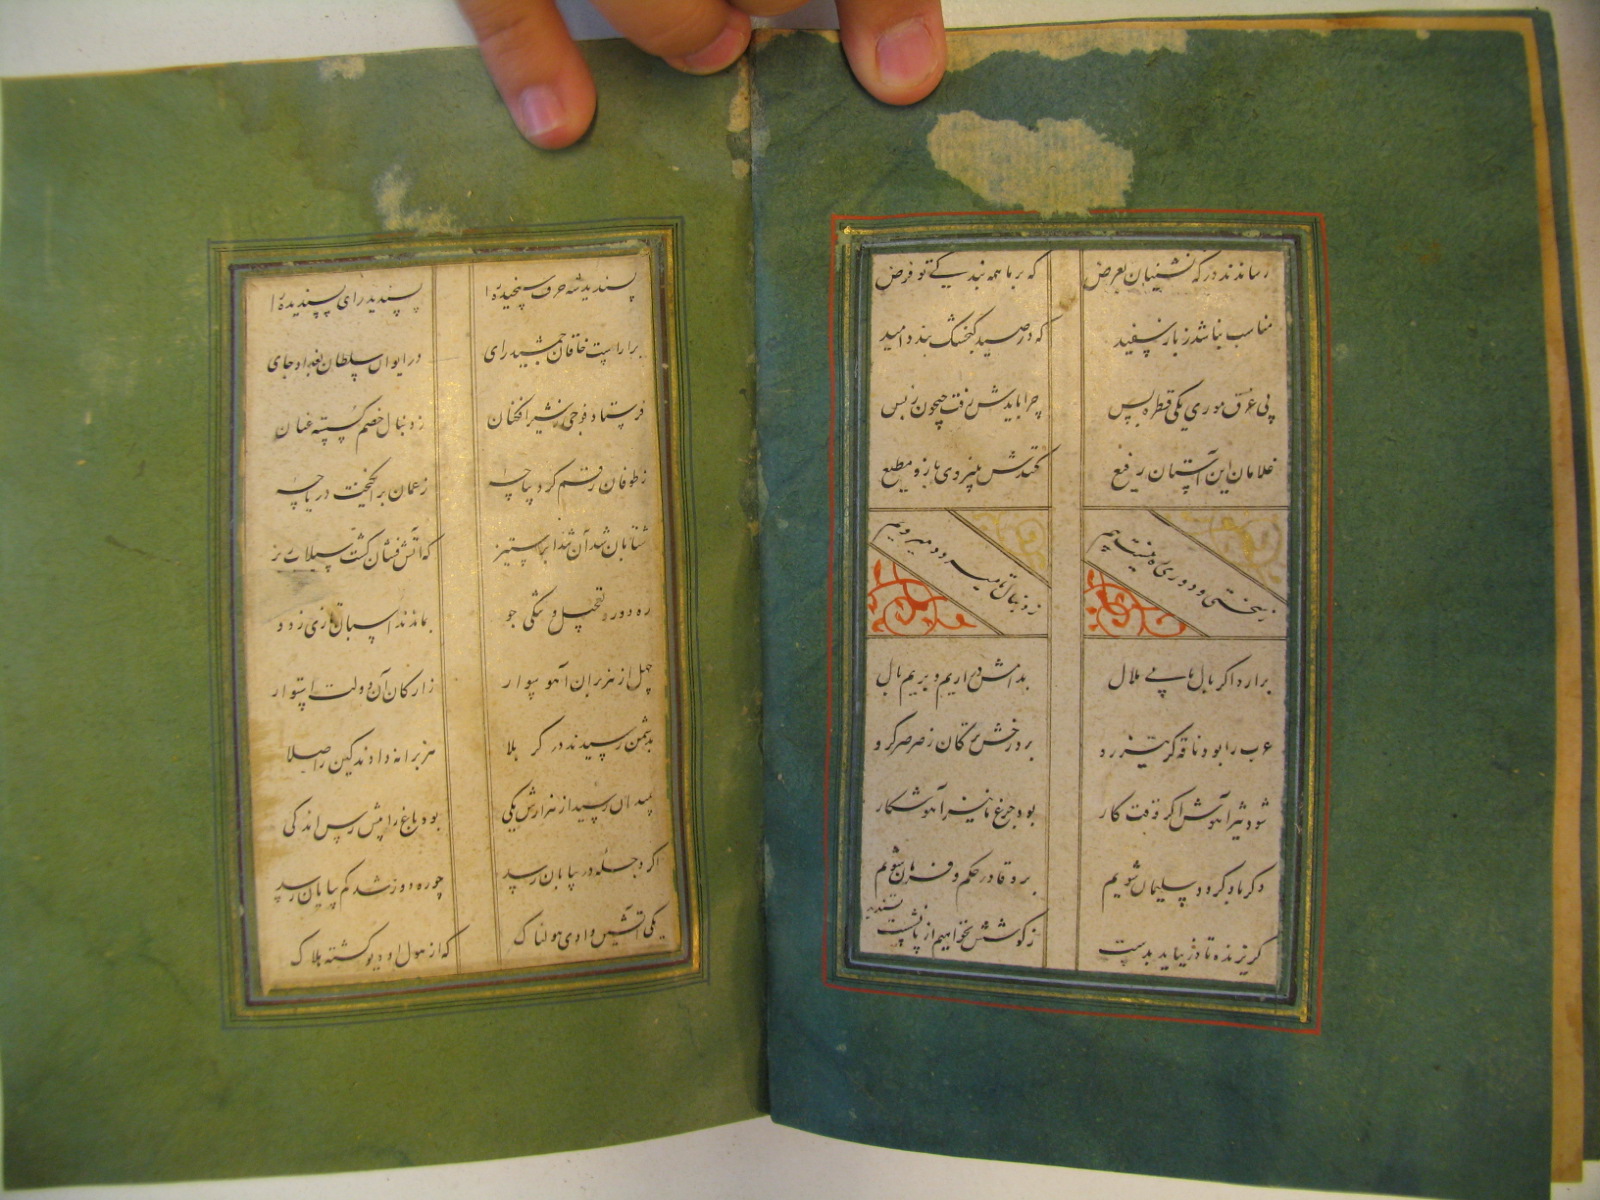 رساندند درگه نشینان بعرض که بر ما همه بندگی تو فرض
مناسب نباشد ز باز سفید که در صید گنجشک بندد امید
پی غرق موری یکی قطره بس چرا بایدش رفت جیحون ز پس
غلامان این آستان رفیع کنندش بنیروی بازو مطیع
ز سختی و دوری ز دنبال
برآرد اگر بال هلال بدامش در آریم و بریم بال
عرب را بود ناقه گر تیزرو برد رخش ترکان ز صرصر گرو
شود شیر آهوش اگر وقت کار بود چرغ ما نیز آهو شکار
وگر باد گردد سلیمان شویم برو قادر حکم و فرمان شویم
گریزنده تا در نیاید بدست ز کوشش نخواهیم از پا نشست
پسندیده
پسندید شه حرف سنجیده را پسندید رای پسندیده را
برآراست خاقان جمشید رای در ایوان سلطان بغداد جای
فرستاد فوجی ز شیر افکنان ز دنبال خصم گسسته عنان
ز طوفان رقم کرد دیباچه ز عمان برانگیخت دریاچه
شتابان شد آن ستیز که آتش فشان گشت سیلاب ریز
ره دور و تعجیل و تنگی جو بماندند اسبان تازی ز دو
چهل از هزبران آهو سوار ز ارکان آن دولت استوار
بدشمن رسیدند در کربلا هزبرانه دادند کین را صلا
بمیدان رسید از هزارش یکی بود باغ را پیش رس اندکی
اگر دجله در بیابان رسید چو ره دور شد کم بپایان رسید
یکی آتشین وادی هولناک که از هول او دیو گشته هلاک